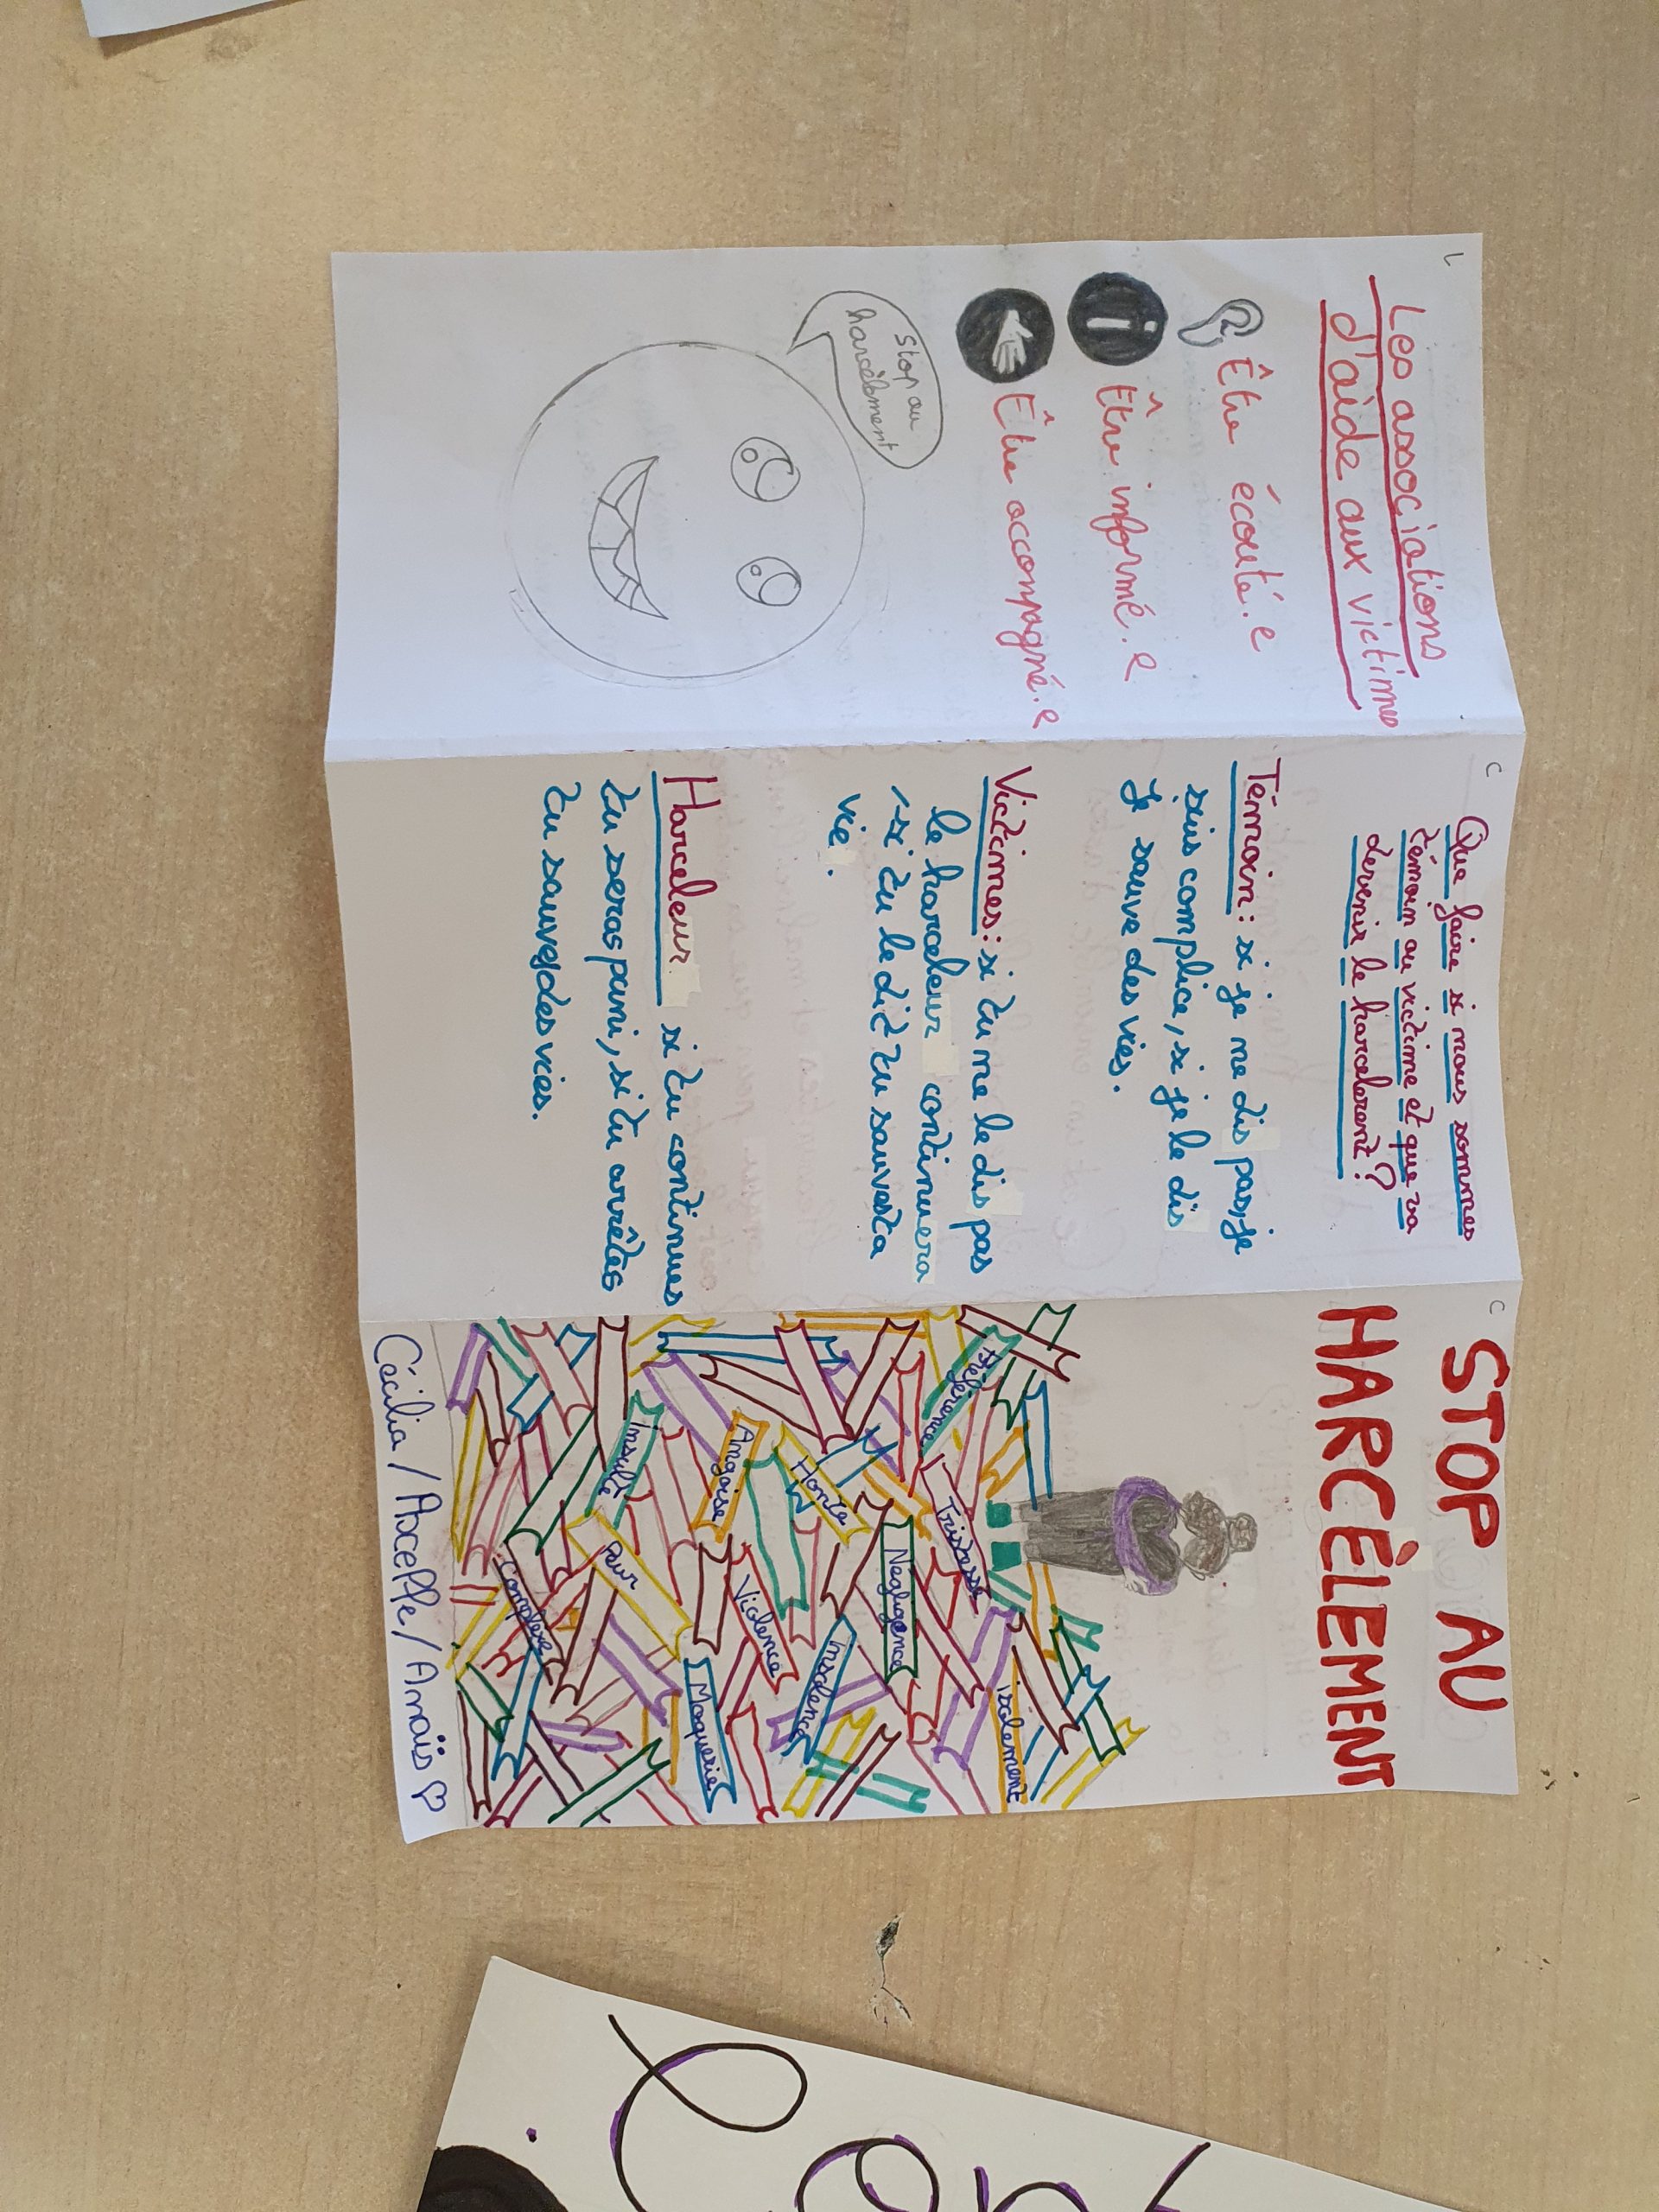 Les associations
d'aide aux victimes
Être écouté.e
Être informé.e
Être accompagné.e
Stop au
harcèlement
Que faire si nous sommes
témoin ou victime et que va
devenir le harcelerent ?
Témoin : si je ne dis pas, je
suis complice, si je le dis
je sauve des vies.
Victimes : si tu ne le dis pas
le harceleur continuera
, si tu le dit tu sauvesta
vie.
Harceleur si tu continues
tu seras puni, si tu arrêtes
tu sauves des vies.
STOP AU
HARCÈLEMENT
Tristesse
isolement
Honte
Négligence
Angoisse
Violence
Insolence
Insulte
Peur
Moquerie
Complexe
Cécilia / Asceffe / Anaïs